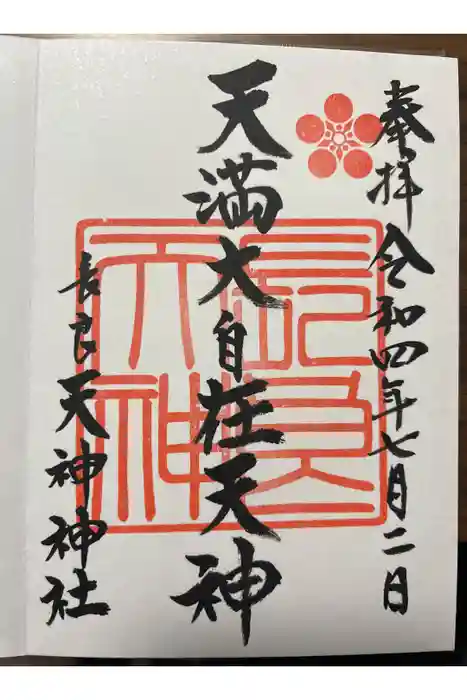 奉拝
令和四年七月二日
天満大自在天神
長良天神神社
長良天神